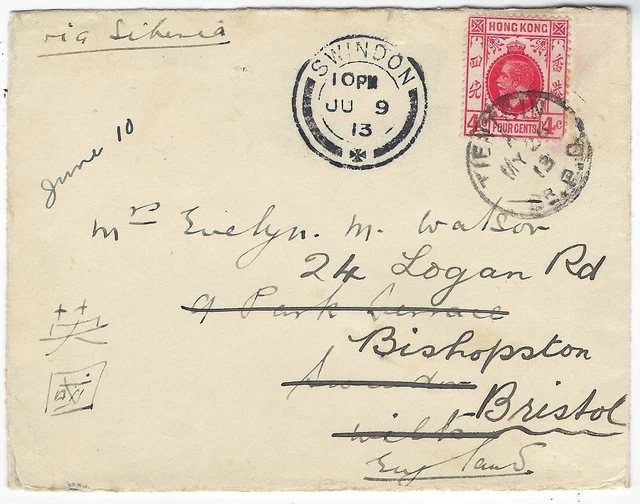 via Siberia
HONG KONG
四
仙
香
港
4c
FOUR CENTS
4c
SWINDON
10PM
JU 9
13
TIENTSIN
MY
13
BR.P.O.
June 10
Mrs Evelyn. M. Watson
24 Logan Rd
9 Park Terrace
Bishopston
Swindon
Bristol
Wilts
England.
英
國